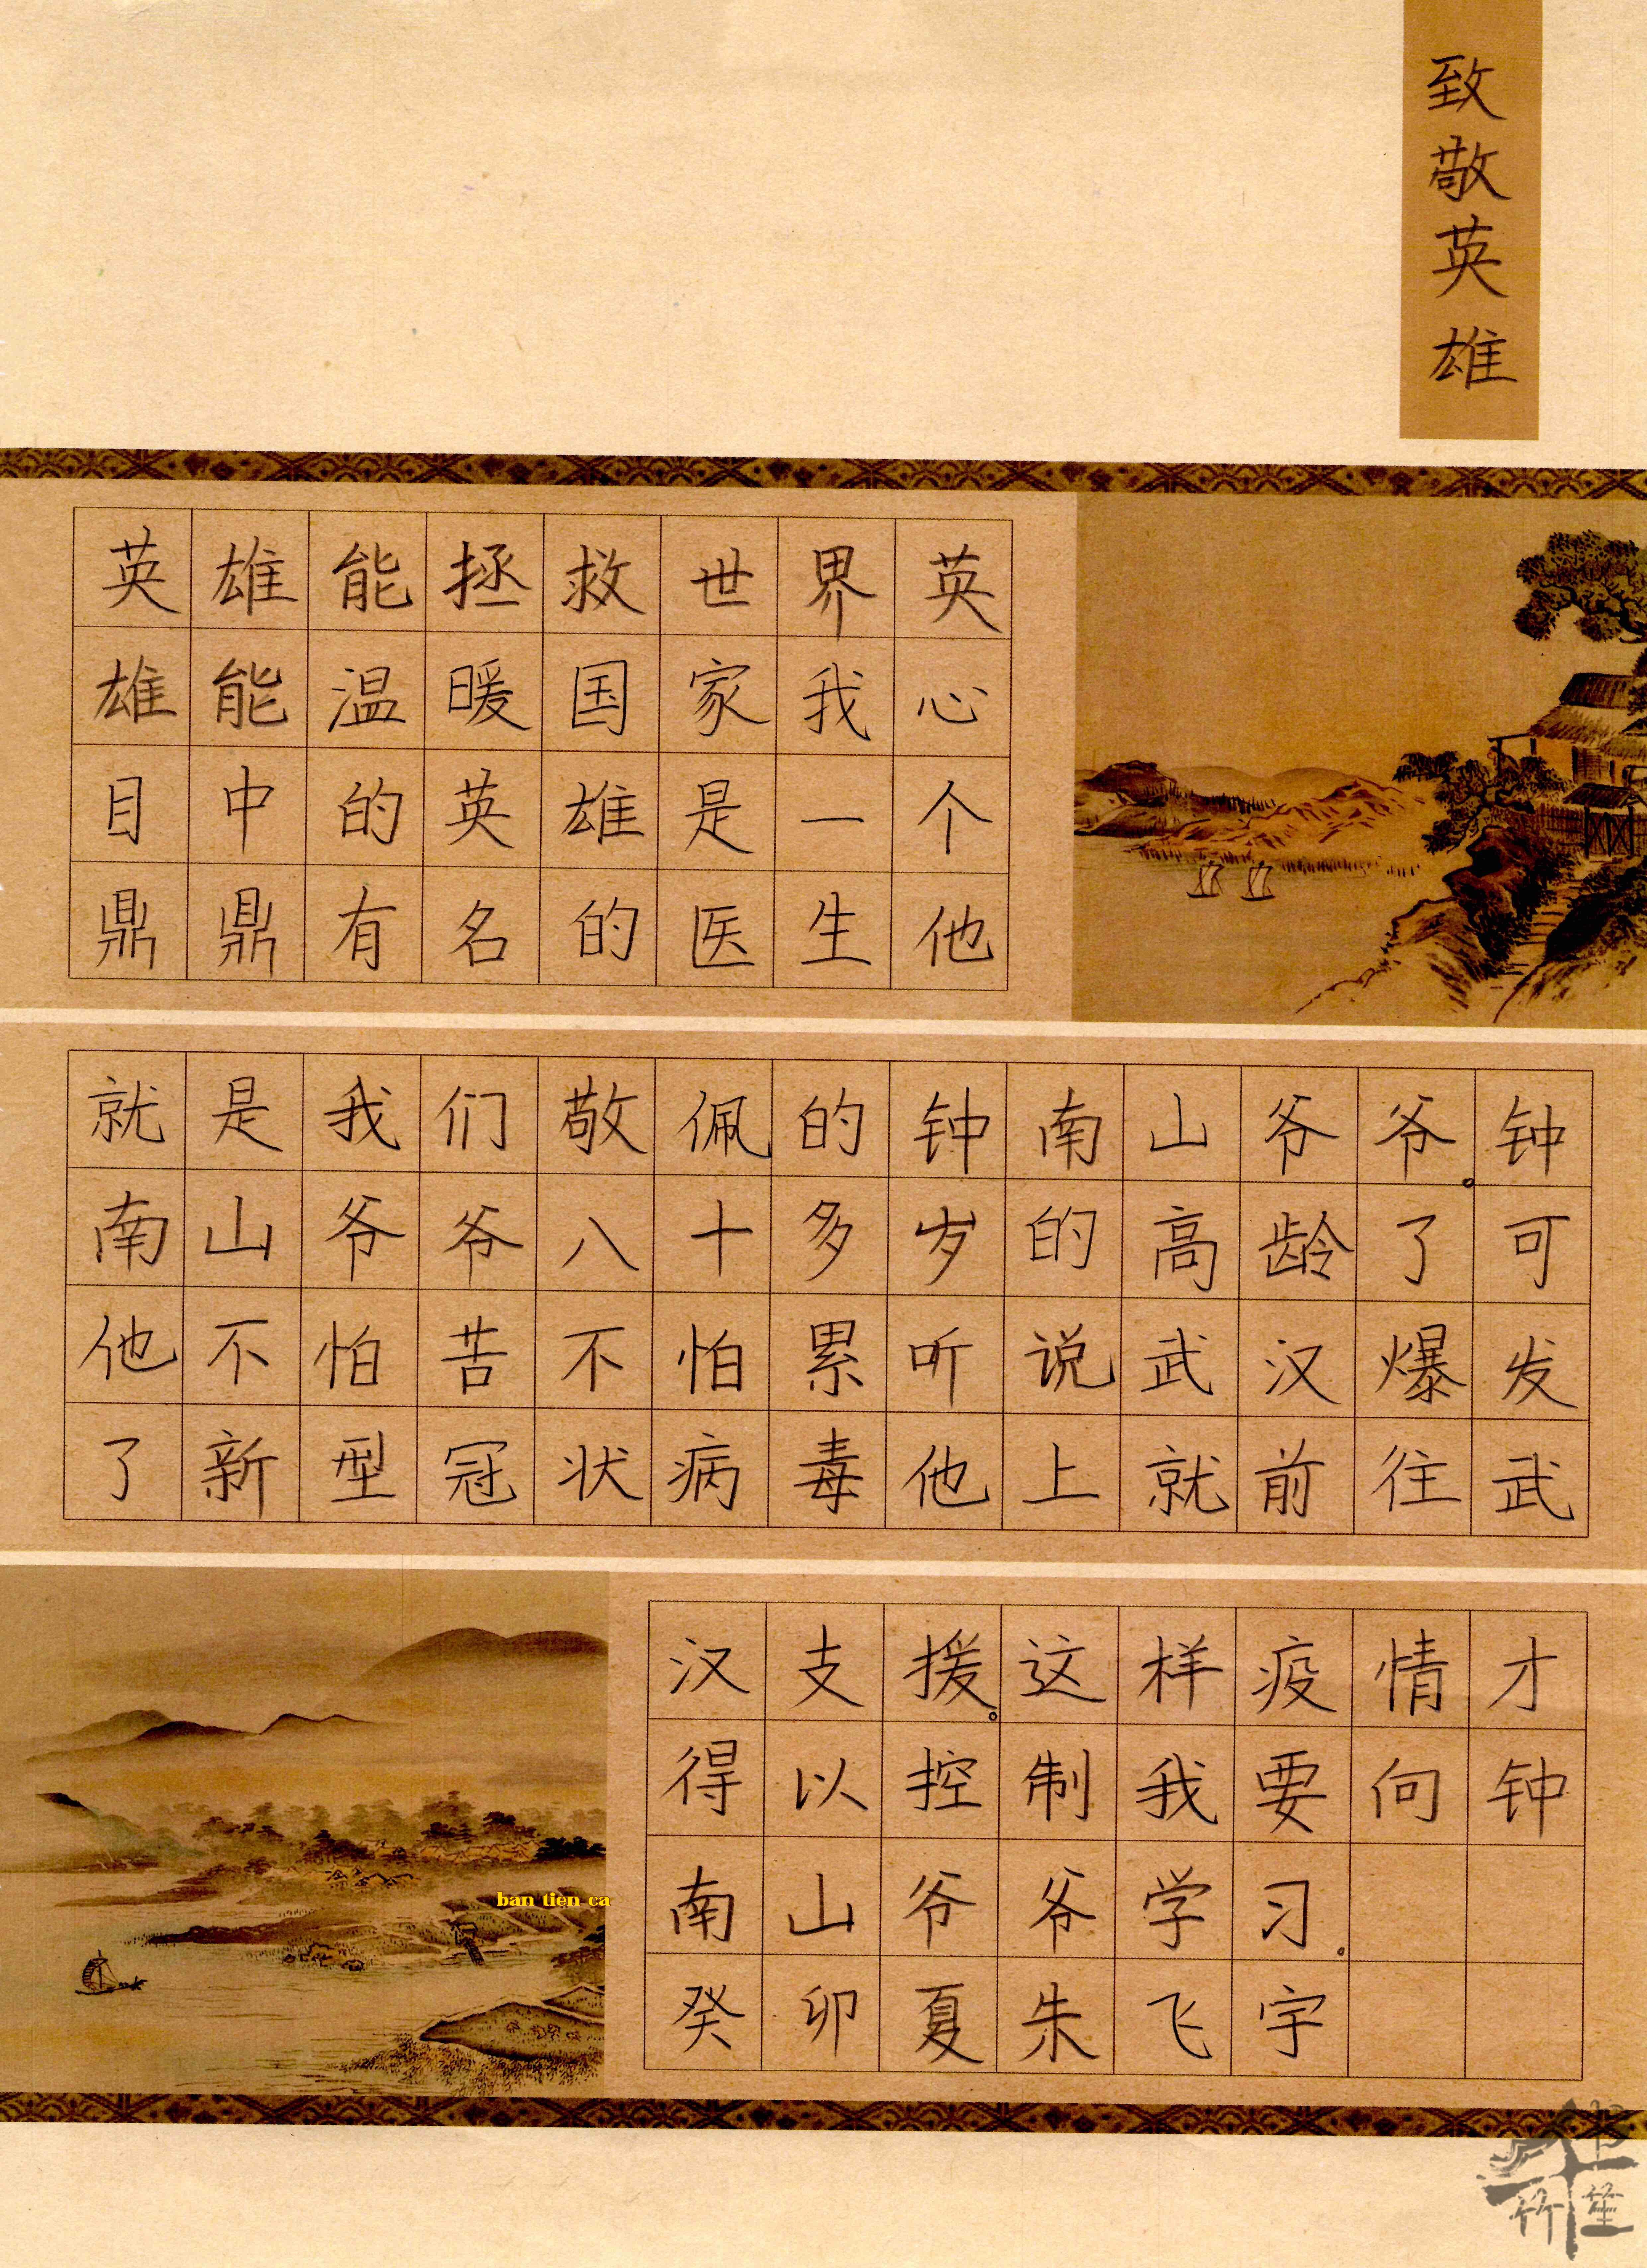 致敬英雄
英雄能拯救世界英
雄能温暖国家我心
目中的英雄是一个
鼎鼎有名的医生他
就是我们敬佩的钟南山爷爷。钟
南山爷爷八十多岁的高龄了可
他不怕苦不怕累听说武汉爆发
了新型冠状病毒他上就前往武
汉支援。这样疫情才
得以控制我要向钟
南山爷爷学习。
癸卯夏朱飞宇
ban tien ca